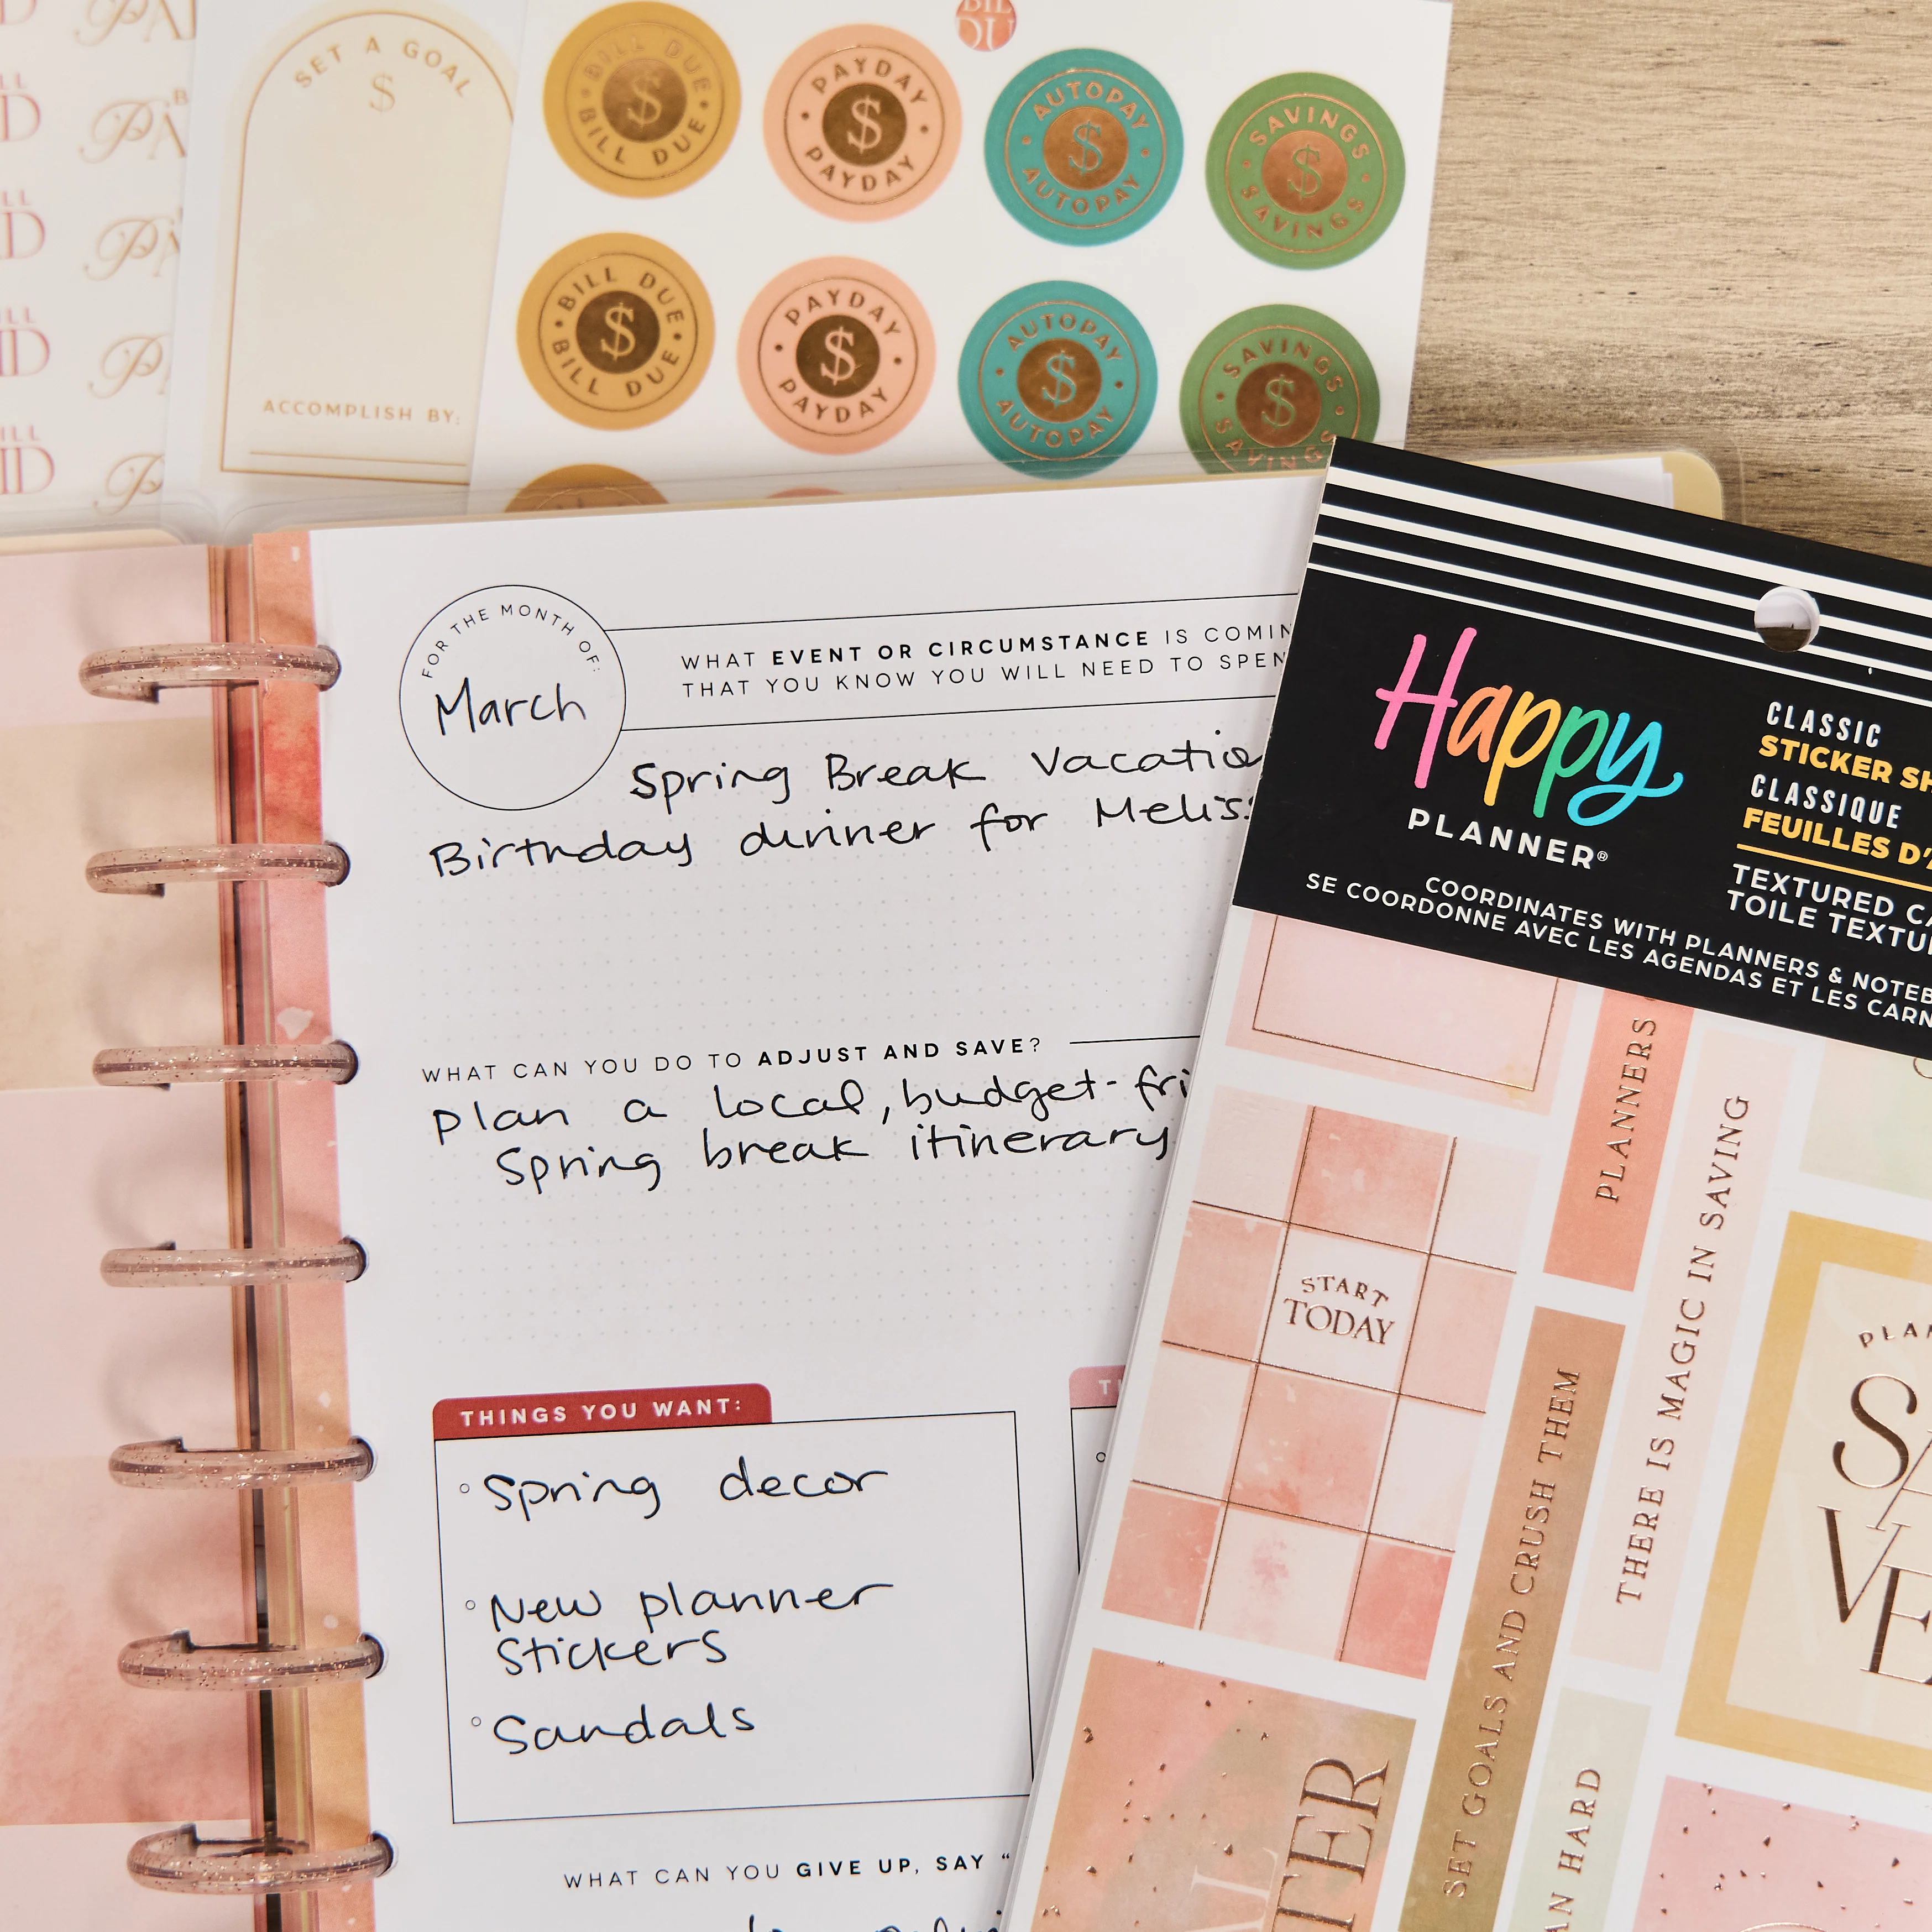 SET A GOAL
$
ACCOMPLISH BY:
BILL DUE • BILL DUE • $
PAYDAY • PAYDAY • $
AUTOPAY • AUTOPAY • $
SAVINGS • SAVINGS • $
BILL DUE • BILL DUE • $
PAYDAY • PAYDAY • $
AUTOPAY • AUTOPAY • $
SAVINGS • SAVINGS • $
FOR THE MONTH OF:
March
WHAT EVENT OR CIRCUMSTANCE IS
THAT YOU KNOW YOU WILL NEED TO
Spring Break
Birthday dinner for
WHAT CAN YOU DO TO ADJUST AND SAVE?
plan a local, budget-
Spring break itinerary
THINGS YOU WANT:
Spring decor
New planner
Stickers
Sandals
WHAT CAN YOU GIVE UP, SAY "
Happy
PLANNER®
CLASSIC
STICKER
CLASSIQUE
FEUILLES
TEXTURED
TOILE
COORDINATES WITH PLANNERS &
SE COORDONNE AVEC LES AGENDAS ET LES
PLANNERS
THERE IS MAGIC IN SAVING
START
TODAY
SET GOALS AND CRUSH THEM
HARD